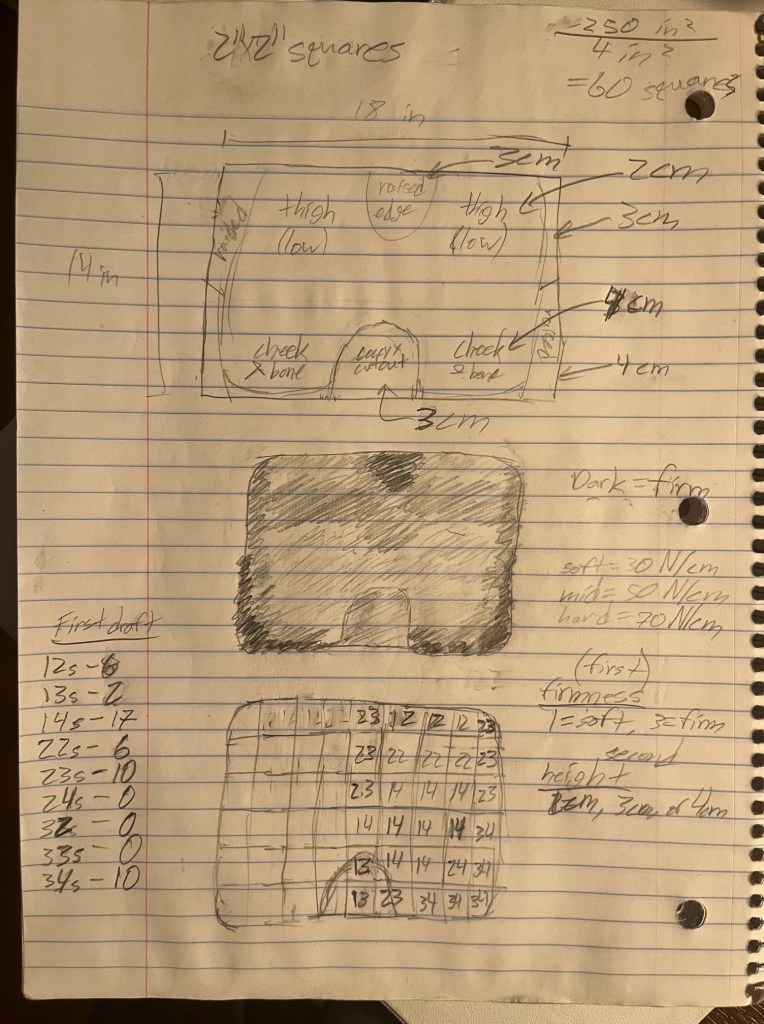 2"x2" squares
~250 in²
4 in²
=60 squares
18 in
3cm
raised
edge
2cm
thigh
(low)
thigh
(low)
raised
3cm
14 in
4cm
cheek
& bone
cutout
cheek
& bone
4cm
3cm
Dark = firm
soft = 30 N/cm
mid = 50 N/cm
hard = 70 N/cm
First draft
12s - 6
13s - 2
14s - 17
22s - 6
23s - 10
24s - 0
32s - 0
33s - 0
34s - 10
(first)
firmness
1=soft, 3=firm
second
height
2cm, 3cm, or 4cm
12 23 12 12 12 23
23 22 22 22 23
23 14 14 14 23
14 14 14 14 34
13 14 14 24 34
13 23 34 34 34